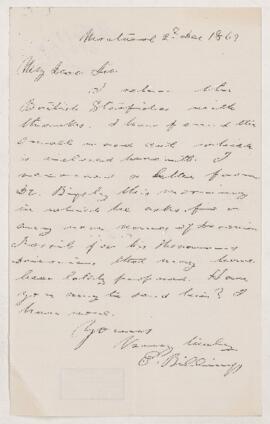 Montreal 2d Dec 1867
My Dear Sir
I return the
British
with
thanks. I have found the
which
is enclosed herewith. I
received a letter from
Dr. Bigsby this morning
in which he asks for
any new names of Devonian
Fossils for his Thesaurus
Devonicus that may have
been lately proposed. Have
you any to send him? I
have none.
Yours
Very truly
E. Billings